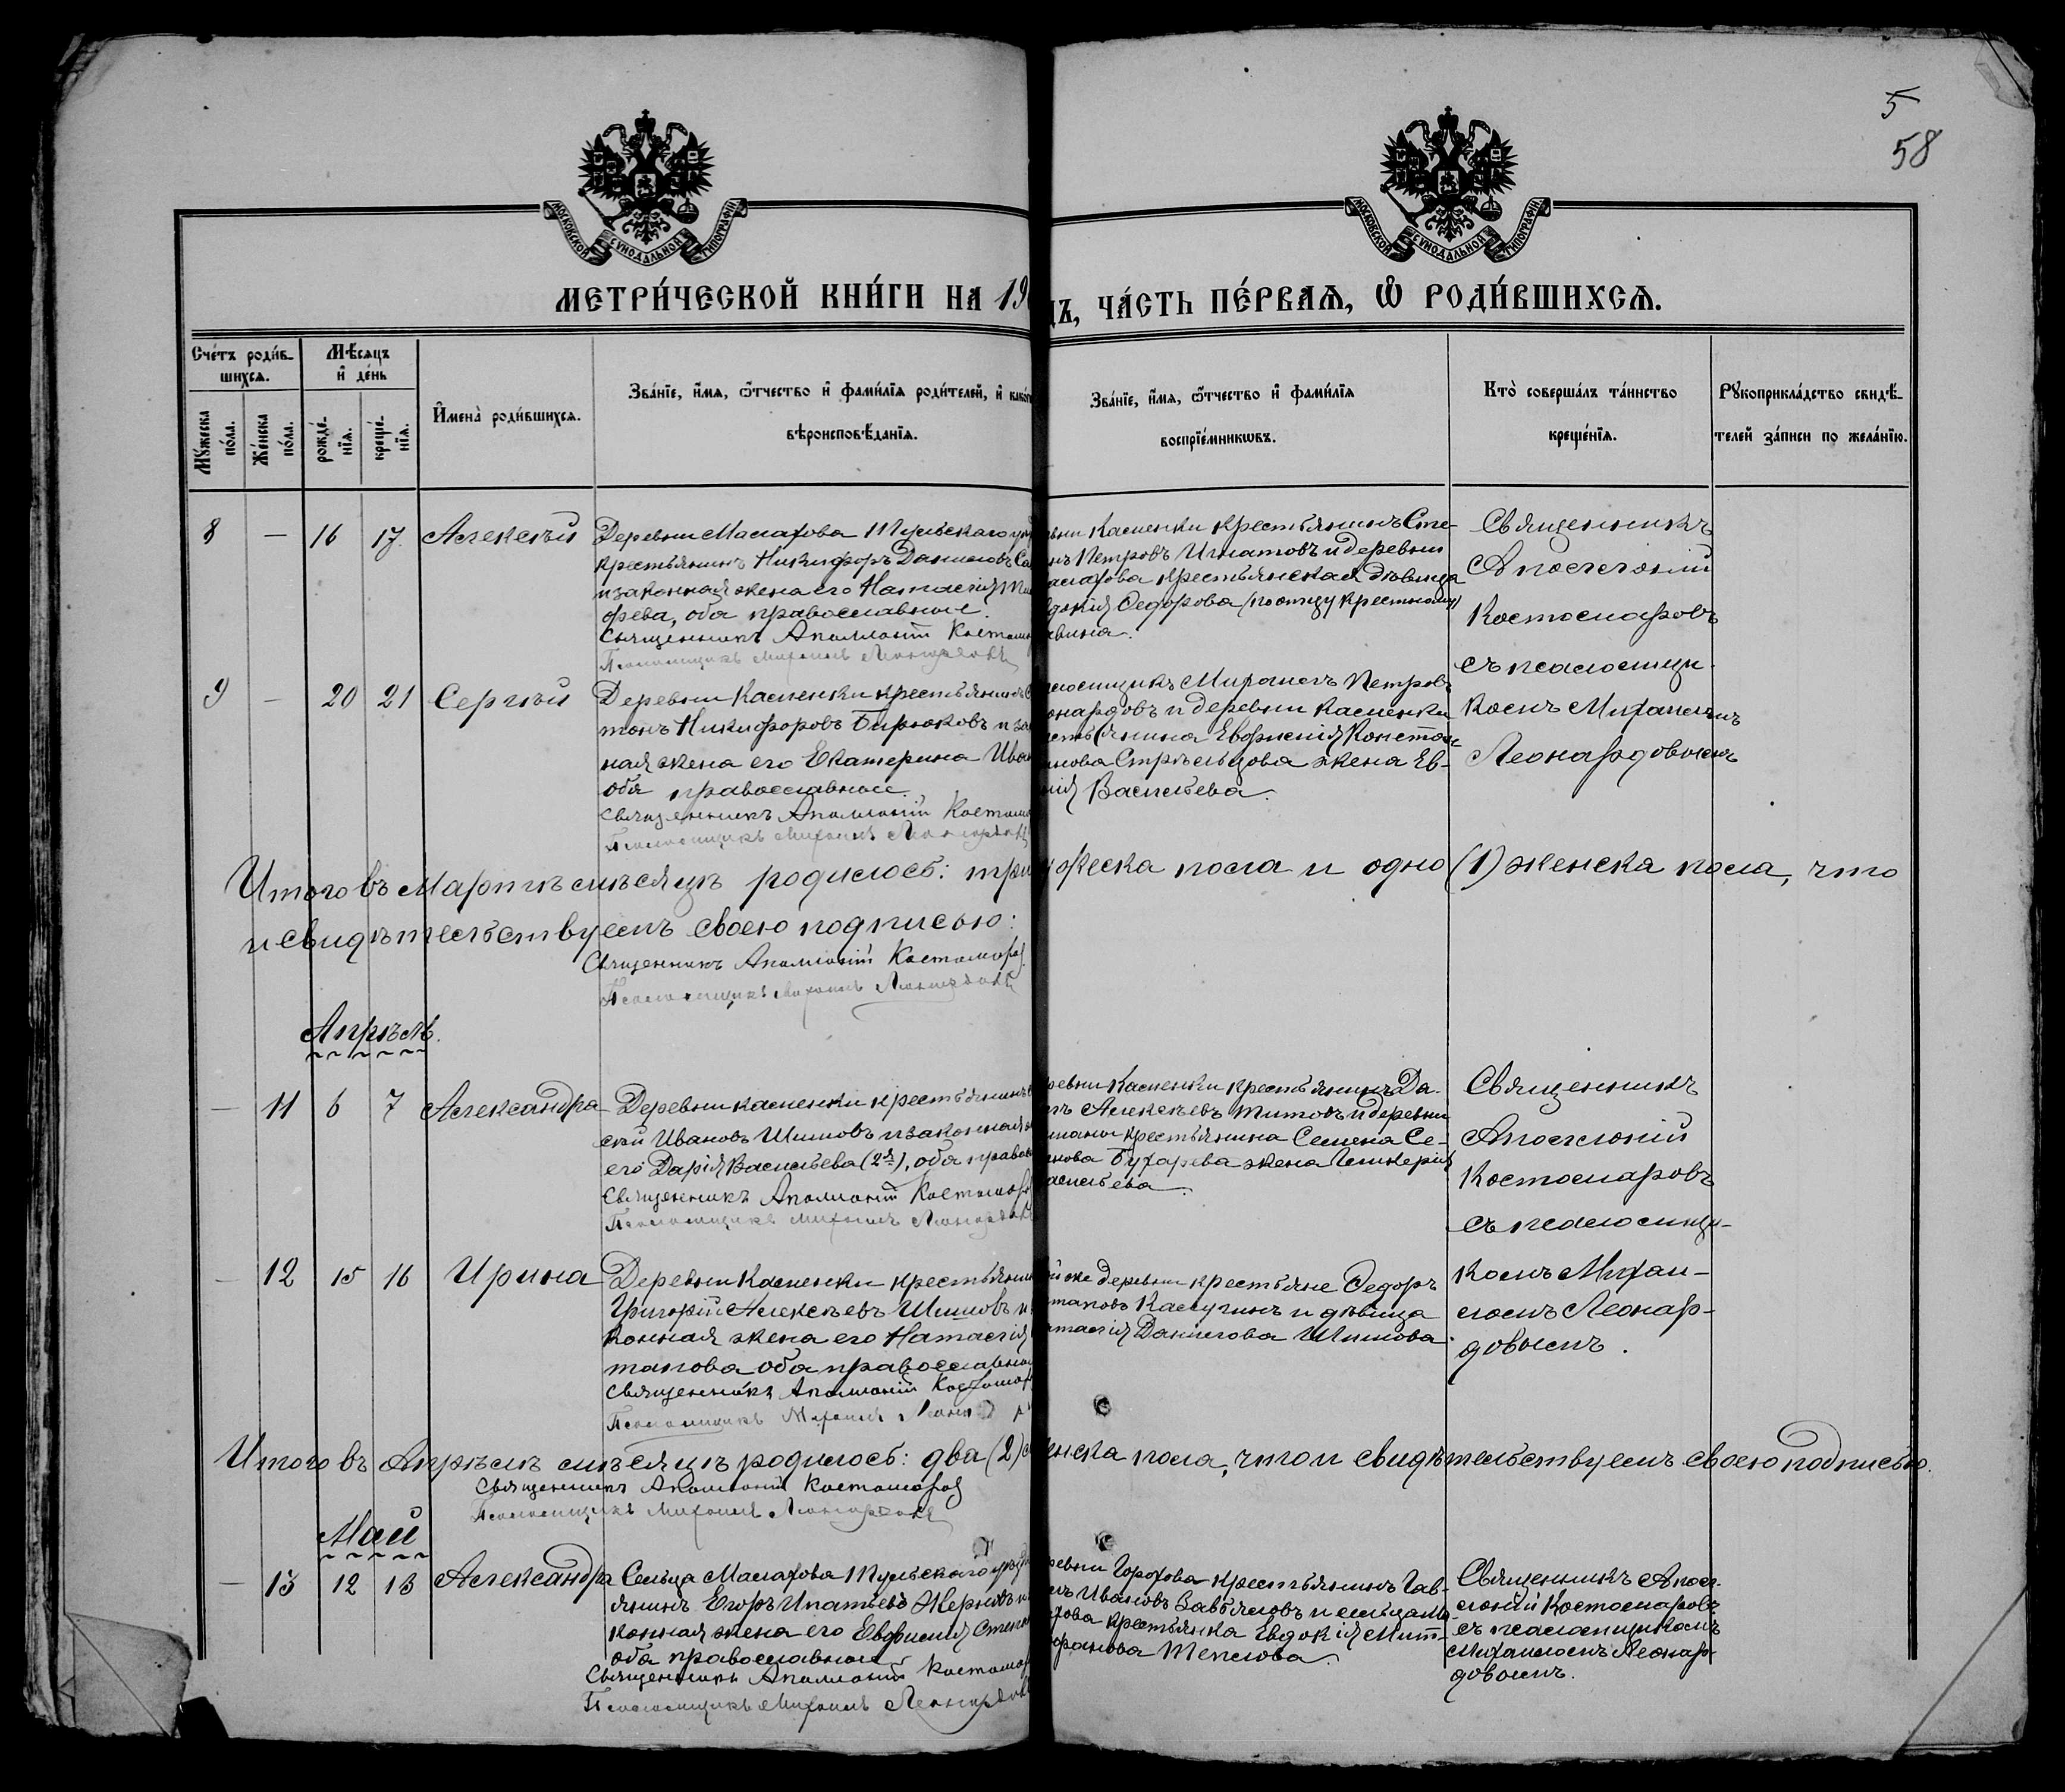 5
58
МОСКОВСКОЙ СѴНОДАЛЬНОЙ ТИПОГРАФІИ
МОСКОВСКОЙ СѴНОДАЛЬНОЙ ТИПОГРАФІИ
МЕТРИ́ЧЕСКОЙ КНИ́ГИ НА 19
ДЪ, ЧА́СТЬ ПЕ́РВАѦ, Ѡ҆ РОДИ́ВШИХСѦ.
Сче́тъ роди́в-
шихсѧ.
Мѣ́сѧцъ
и҆ де́нь
Мꙋ́жеска по́ла.
Же́нска по́ла.
рожде́-
нїѧ.
креще́-
нїѧ.
И҆мена̀ роди́вшихсѧ.
Зва́нїе, и҆́мѧ, ѻ҆́тчество и҆ фами́лїѧ роди́телей, и҆ како́г
вѣроисповѣ́данїѧ.
Зва́нїе, и҆́мѧ, ѻ҆́тчество и҆ фами́лїѧ
воспрїе́мникѡвъ.
Кто̀ соверша́лъ та́инство
креще́нїѧ.
Рꙋкоприкла́дство свидѣ́-
телей за́писи по жела́нїю.
8 — 16 17. Алексѣй
Деревни Малахова Тульскаго уѣз
крестьянинъ Никифоръ Даниловъ Са
и законная жена его Наталія Ти
фѣева, оба православные.
Священникъ Аполлоній Костома
Псаломщикъ Михаилъ Леонардовъ
евни Каменки крестьянинъ Сте-
нъ Петровъ Игнатовъ и деревни
алахова крестьянская дѣвица
вдокія Ѳедорова (по отцу крестному)
авина.
Священникъ
Аполлоній
Костомаровъ
съ псаломщи-
комъ Михаиломъ
Леонардовымъ
9 — 20 21 Сергѣй
Деревни Каменки крестьянинъ
тонъ Никифоровъ Бирюковъ и за
ная жена его Екатерина Иван
оба православные.
Священникъ Аполлоній Костома
Псаломщикъ Михаилъ Леонардовъ
аломщикъ Михаилъ Петровъ
онардовъ и деревни Каменки
естьянина Евфимія Констан-
инова Стрѣльцова жена Ев-
мія Васильева.
Итого въ Мартѣ мѣсяцѣ родилось: три
ужеска пола и одно (1) женска пола, что
и свидѣтельствуемъ своею подписью:
Священникъ Аполлоній Костомаров
Псаломщикъ Михаилъ Леонардовъ
Апрѣль.
— 11 6 7 Александра
Деревни Каменки крестьянинъ
сѣй Ивановъ Шишовъ и законная
его Дарія Васильева (2я), оба правос
Священникъ Аполлоній Костомаров
Псаломщикъ Михаилъ Леонардовъ
ревни Каменки крестьянинъ Да-
лъ Алексѣевъ Титовъ и деревни
крестьянина Семена Се-
енова Бухарева жена Гликерія
асильева.
Священникъ
Аполлоній
Костомаровъ
съ псаломщи-
комъ Михаи-
ломъ Леонар-
довымъ.
— 12 15 16 Ирина
Деревни Каменки крестьянин
Григорій Алексѣевъ Шишовъ и
конная жена его Наталія
тапова оба православные
Священникъ Аполлоній Костомар
Псаломщикъ Михаилъ Леонар
ой же деревни крестьяне Ѳедоръ
таповъ Калугинъ и дѣвица
аталія Данилова Шишова.
Итого въ Апрѣлѣ мѣсяцѣ родилось: два (2)
енска пола, что и свидѣтельствуемъ своею подписью.
Священникъ Аполлоній Костомаров
Псаломщикъ Михаилъ Леонардовъ
Май
— 13 12 13 Александра
Сельца Малахова Тульскаго уѣзда
янинъ Егоръ Ипатьевъ Жерновъ и
конная жена его Евфимія Степан
оба православные
Священникъ Аполлоній Костомар
Псаломщикъ Михаилъ Леонардов
ревни Горохова крестьянинъ Гав-
лъ Ивановъ Завьяловъ и сельца Ма-
ахова крестьянка Евдокія Мит-
рофанова Теплова
Священникъ Апол-
лоній Костомаровъ
съ псаломщикомъ
Михаиломъ Леонар-
довымъ.